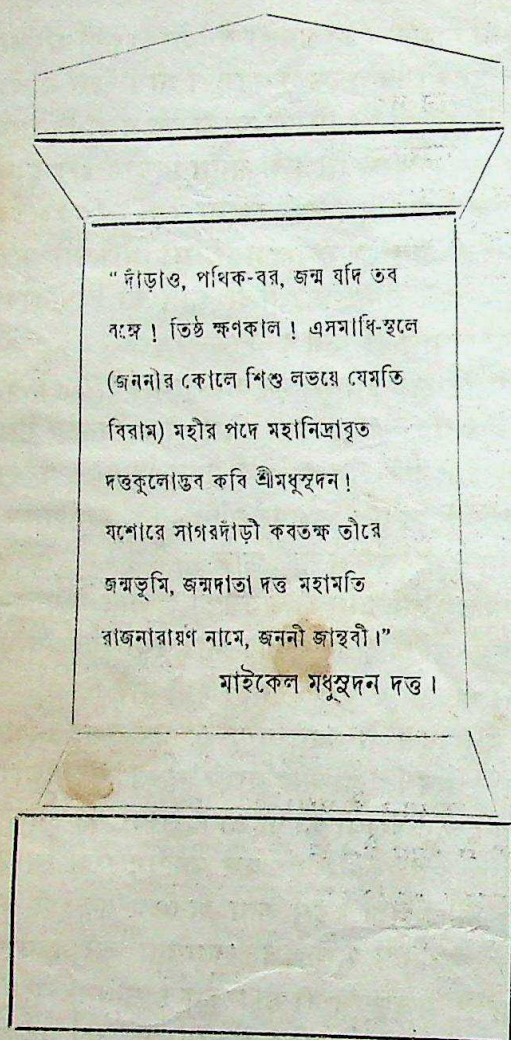 “দাঁড়াও, পথিক-বর, জন্ম যদি তব
বঙ্গে ! তিষ্ঠ ক্ষণকাল ! এসমাধি-স্থলে
(জননীর কোলে শিশু লভয়ে যেমতি
বিরাম) মহীর পদে মহানিদ্রাবৃত
দত্তকুলোদ্ভব কবি শ্রীমধুসূদন !
যশোরে সাগরদাঁড়ী কবতক্ষ তীরে
জন্মভূমি, জন্মদাতা দত্ত মহামতি
রাজনারায়ণ নামে, জননী জাহ্নবী।”
মাইকেল মধুসূদন দত্ত।